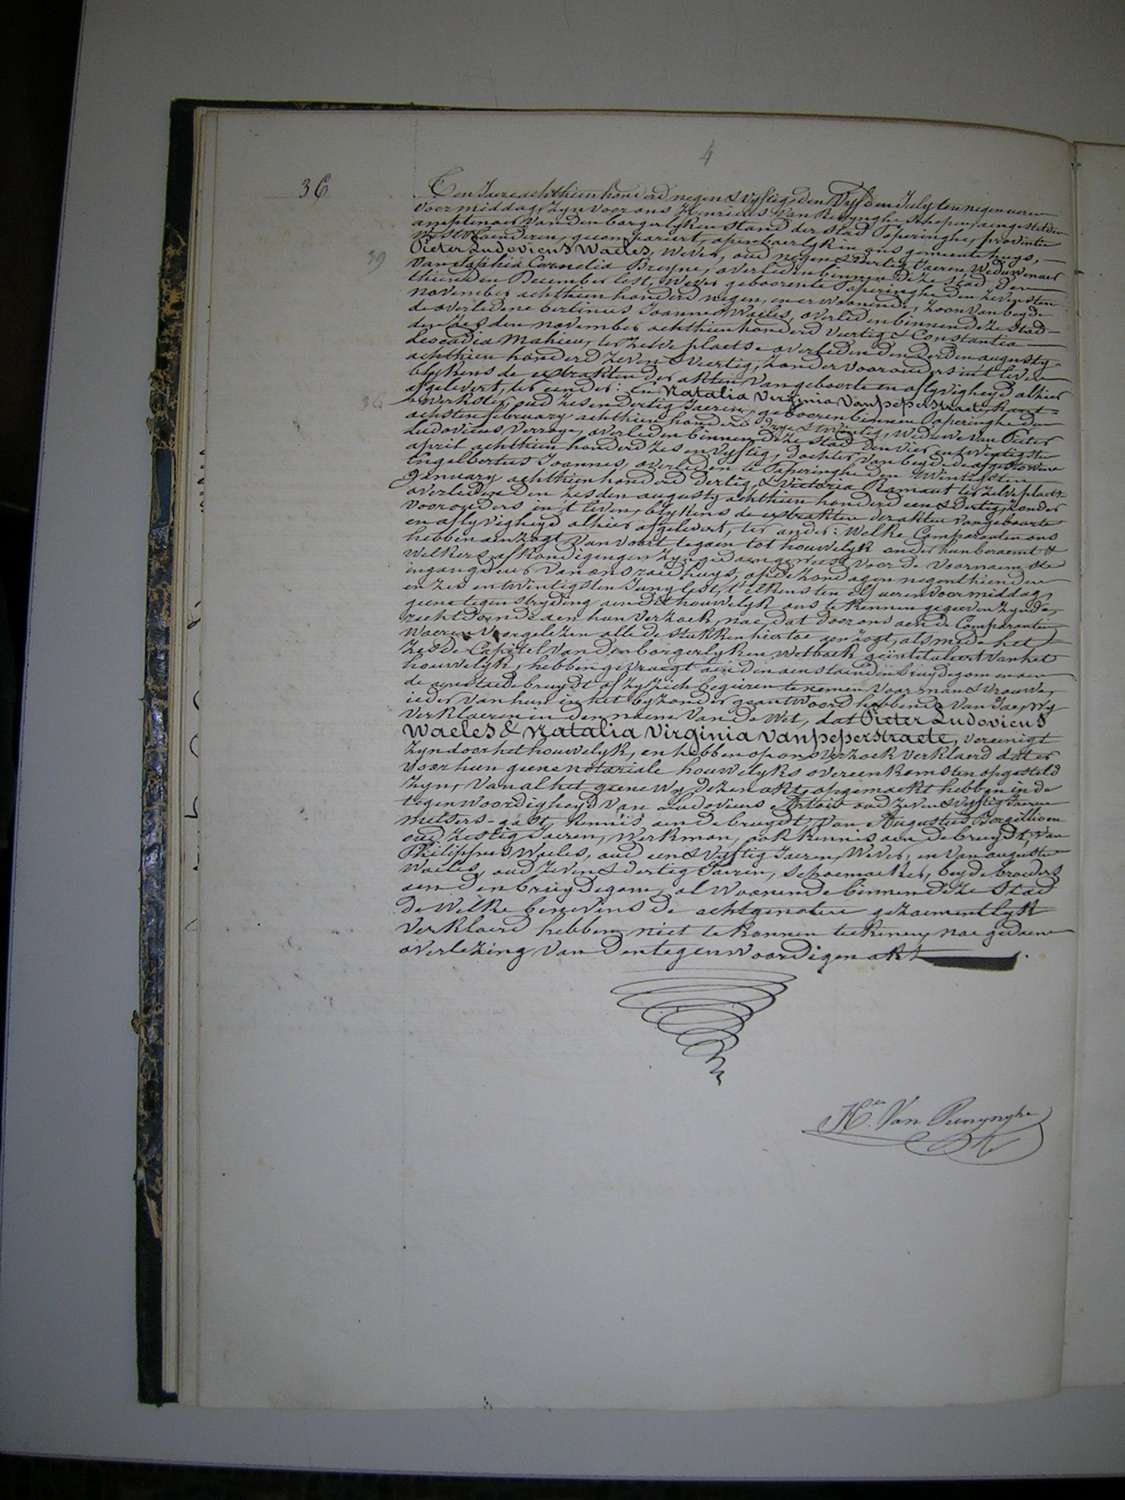 4
36
Ten Jaere achthien honderd negen & vyftig, den Vyfden July ten negen uren
voormiddag, zyn voor ons Henricus Van Renynghe Schepen, aengestelden
amptenaer van den borgerlyken stand der stad Poperinghe, provintie
Westvlaenderen, gecompareert, openbaerlyk in ons gemeentehuys,
39
Pieter Ludovicus Waeles, Wever, oud negen & veertig Jaeren, Weduwenaer
van Sophia Cornelia Broyne, overleden binnen deze stad den
thienden December lest, Wezer geboorente Poperinghe den zevensten
november achthien honderd negen, en er woonende, Zoon van beyde
de overledene Bertinus Joannes Waeles, overleden binnen deze Stad
den november achthien honderd Veertig & Constantia
Leocadia Mahieu, ter zelve plaetse overleden den derden augusty
achthien honderd zeven & veertig, zonder voorouders in t leven
blykens de extrakten der akten van geboorte en aflyvigheyd alhier
afgelevert, ter eender: En Natalia Virginia Vanpeperstraete, kant-
36
werkster, oud zes en dertig Jaeren, geboren binnen Poperinghe den
achsten february achthien honderd Weduwe van Pieter
Ludovicus Verroye, overleden binnen deze Stad den vier en twintigsten
april achthien honderd zes en vyftig, dochter van beyde de afgestorvene
Engelbertus Joannes, overleden te Poperinghe den twintigsten
January achthien honderd dertig, & Victoria Ramaut ter zelve plaetse
overleden den zesden augusty achthien honderd een & dertig, zonder
voorouders in t leven, blykens de extrakten der akten van geboorte
en aflyvigheyd alhier afgelevert, ter ander: Welke Comparenten ons
hebben aenzogt van voort te gaen tot houwelyk onder hun beraemt &
welkers afkondigingen zyn gedaen geweest voor de voornaemste
ingangdeur van ons raedhuys, op de zondagen negenthienden
en zes en twintigsten Juny lest, t'elkens ten elf ueren voormiddag,
geene tegenstryding aen dit houwelyk ons te kennen gegeven zynde,
recht doende aen hun verzoek, nae dat door ons aen de Comparanten
waeren voorgelezen alle de stukken hier toe genoegt, als mede het
zesde Capitel van den borgerlyken wetboek geintituleert van het
houwelyk, hebben gevraegt aen den aenstaenden bruydegom en aen
de aenstaende bruydt of zy zich begeiren te nemen voor man & vrouwe,
ieder van hun in het byzonder geantwoord hebbende van Jae, Wy
verklaeren in den naeme van de Wet, dat Pieter Ludovicus
Waeles & Natalia Virginia Vanpeperstraete, vereenigt
zyn door het houwelyk, en hebben op ons verzoek verklaerd dat er
voor hun geene notariale houwelyks overeenkomsten opgesteld
zyn, Van al het geene wy dezen akt opgemaekt hebben in de
tegenwoordigheyd van Ludovicus Artois oud zeven & vyftig Jaeren
metsers-gast, kennis aen de bruydt, van Augustus
oud zestig Jaeren, Werkman, ook kennis aen de bruydt, van
Philippus Waeles, oud een & vyftig Jaeren, Wever, en van auguste
Waeles, oud zeven & dertig Jaeren, schoemaeker, beyde broeders
aen den bruydegom, al woonende binnen deze Stad
de welke benevens de echtgenoten gezamentlyk
verklaerd hebben niet te konnen teekenen, nae gedaene
overlezing van den tegenwoordigen akt.
He. Van Renynghe